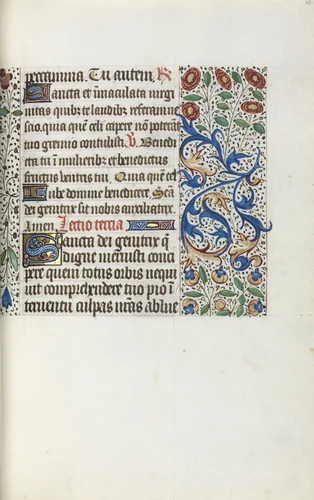 peccamina. Tu autem. R
Sancta et i̅maculata virgi
nitas quib᷒ te laudib᷒ referam ne
scio. quia que̅ celi capere no̅ potera̅t
tuo gremio contulisti. V. Benedi
cta tu i̅ mulierib᷒ et benedictus
fructus ventris tui. Quia que̅ cel
Iube domine benedicere. Sc̅a
dei genitrix sit nobis auxiliatrix
Amen. Lectio tercia
Sancta dei genitrix q̅
digne meruisti conci
pere quem totus orbis nequi
uit comprehendere tuo pio i̅
teruentu culpas n̅ras ablue